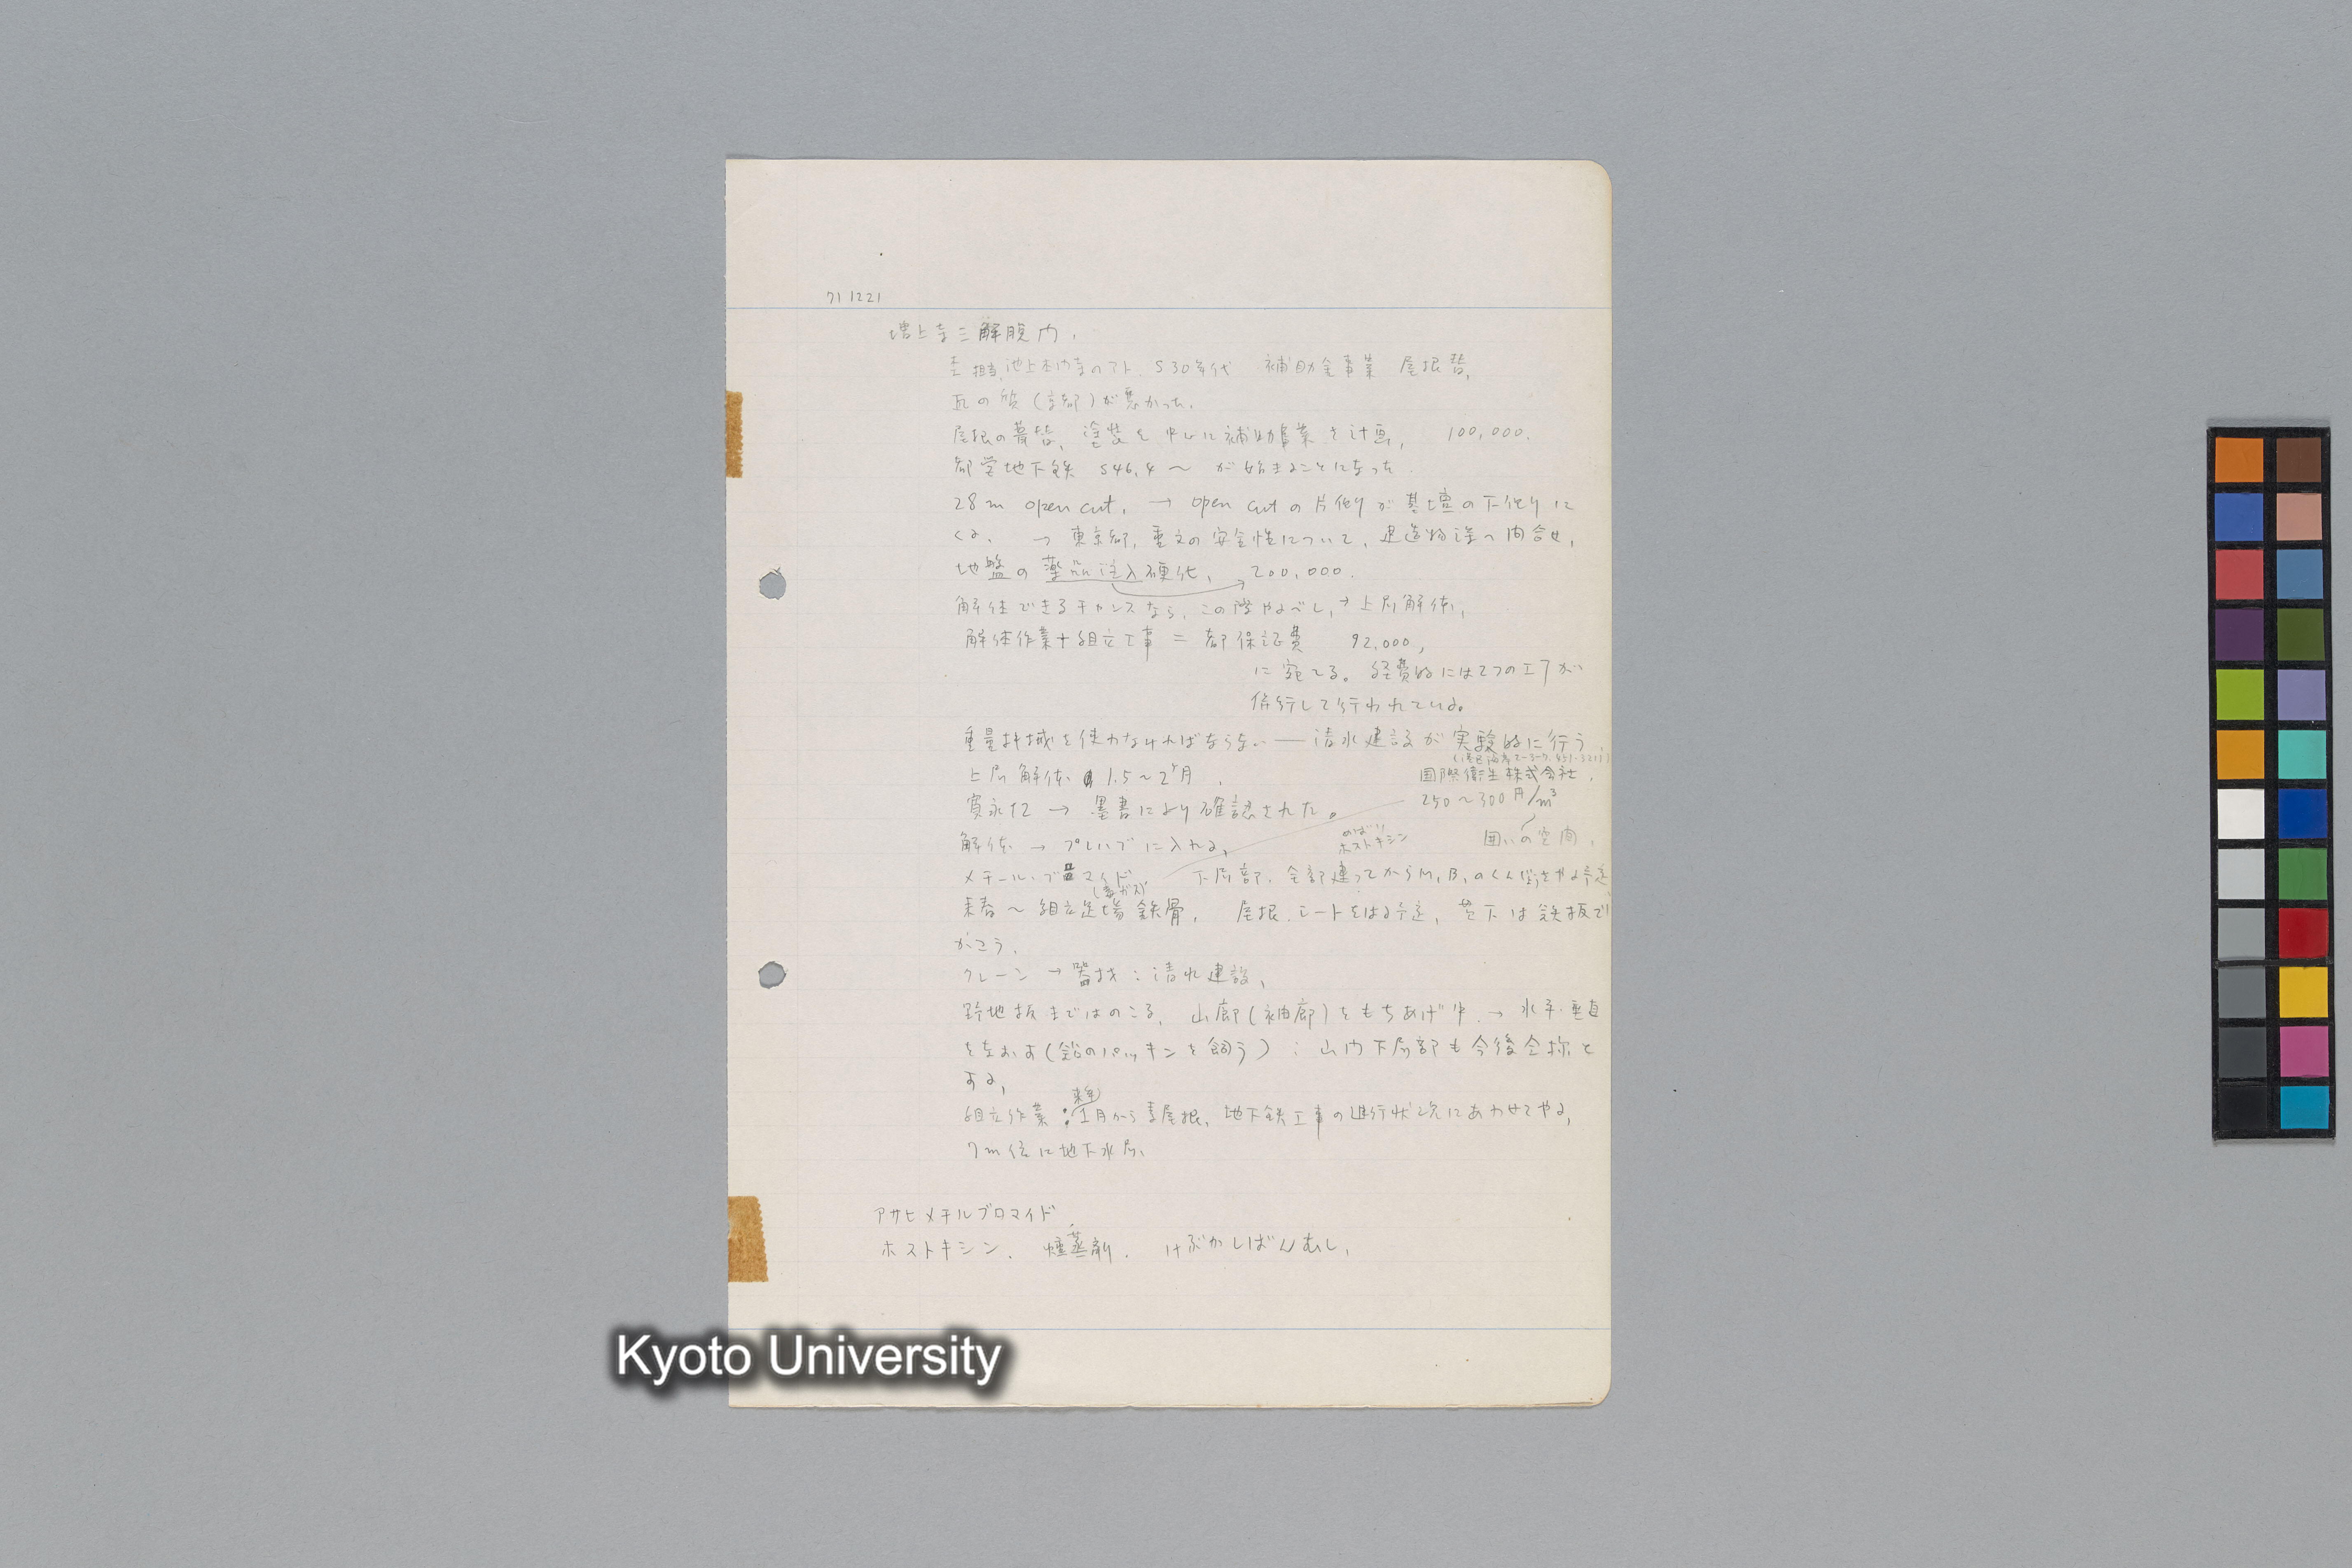 71 1221
増上寺三解脱門.
担当,池上本門寺のアト. S30年代 補助金事業 屋根替,
瓦の質(京都)が悪かった.
屋根の葺替, 塗装を中心に補助事業を計画, 100,000.
都営地下鉄 S46.4〜 が始まることになった.
28m open cut. → open cutの片側が基壇の下側に
くる. → 東京都,重文の安全性について,建造物課へ問合せ,
地盤の薬品注入硬化, 200,000.
解体できるチャンスなら,この際やるべし,→上層解体,
解体作業+組立工事 = 都保証費 92,000,
に宛てる。経費的には2つの工事が
併行して行われている。
重量機械を使わなければならない — 清水建設が実験的に行う.
上層解体 1.5〜2ヶ月.
国際衛生株式会社.
寛永 → 墨書により確認された。
250〜300円/m³
解体 → プレハブに入れる,
ホストキシン
囲いの空間,
メチール・ブロマイド 下層部,全部建ってからM.B.のくんじょうをやる予定
(毒ガス)
来春〜 組立足場 鉄骨, 屋根,シートをはる予定, 下は鉄板で
かこう.
クレーン → 器材:清水建設,
野地板まではのこる, 山廊(袖廊)をもちあげ中.→ 水平・垂直
をなおす(鉛のパッキンを飼う):山門下層部も今後全株と
する,
来年
組立作業:1月から素屋根,地下鉄工事の進行状況にあわせてやる,
7m位に地下水層,
アサヒメチルブロマイド
ホストキシン. 燻蒸剤. けぶかしばんむし,
Kyoto University